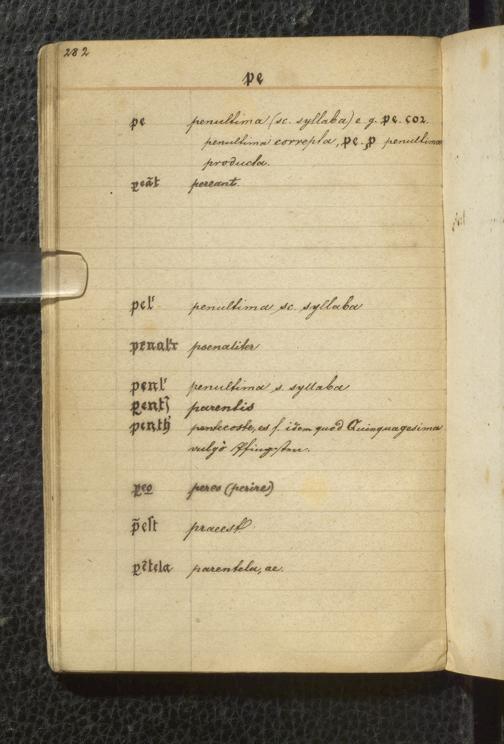 282
pe
pe penultima (sc. syllaba) e. g. pe. coꝛ.
penultima correpta, pe. ꝓ penultima
producta.
ꝑeāt pereant.
pelꝰ penultima sc. syllaba
penalʳ poenaliter
penlꝰ penultima s. syllaba
ꝑentꝭ parentis
penth̄ pentecoste, es f. idem quod Quinquagesima
vulgò Pfingsten.
ꝑeo pereo (perire)
p̄est praeest
ꝑētela parentela, ae.